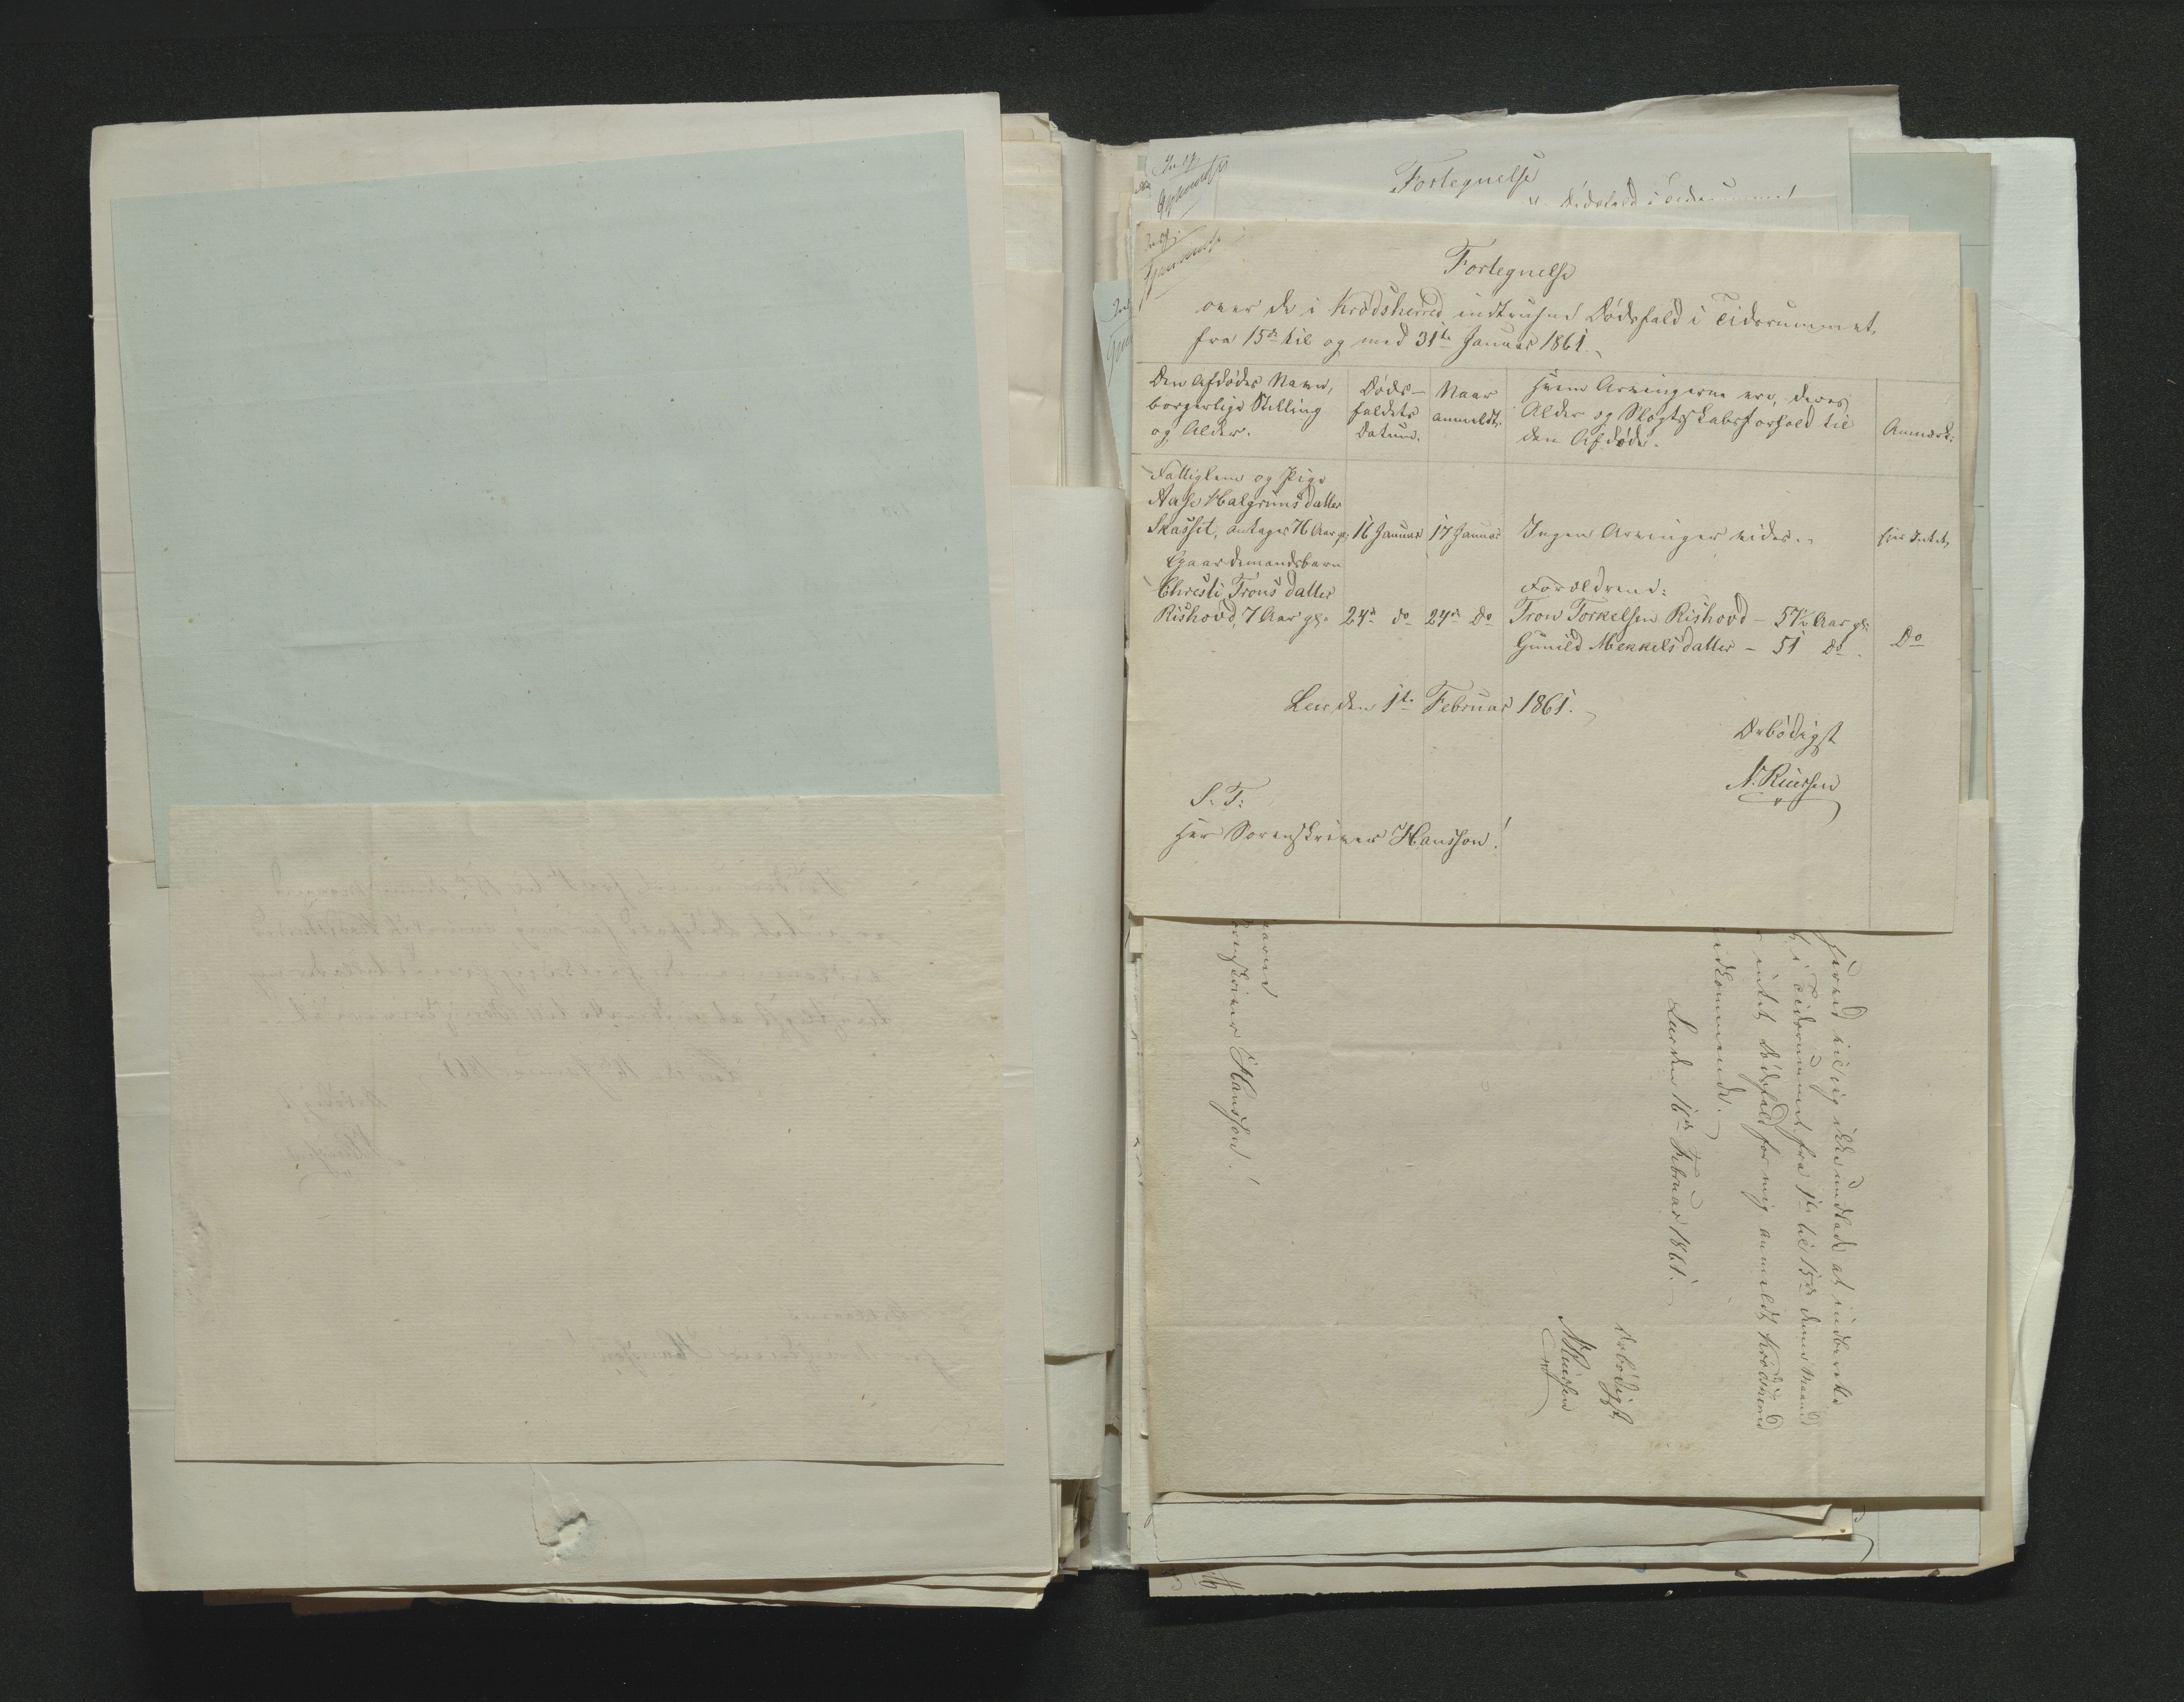 Fortegnelse
Fortegnelse
over de i Krødsherred indtrufne Dødsfald i Tidsrummet
fra 15de til og med 31te Januar 1861.
Den Afdødes Navn,
borgerlige Stilling
og Alder.
Døds-
faldets
Datum.
Naar
anmeldt.
Hvem Arvingerne ere, deres
Alder og Slægtskabsforhold til
den Afdøde.
Anmærk:
Fattiglem og Pige
Aase Halgrimsdatter
Skasset, antages 76 Aar gl. 16 Januar 17 Januar Ingen Arvinger vides. Eier Intet,
Gaardemandsbarn
Christi Tronsdatter
Rishovd, 7 Aar gl. 24de do 24de Do
Forældrene:
Tron Torkelsen Rishovd – 57½ Aar gl.
Gunild Mekkelsdatter – 51 Do. Do
Leer den 1te Februar 1861.
Ærbødigst
N. Ruersen
S. T.
Herr Sorenskriver Hansson!
herved tillige ikke undlade at indberette
i Tidsrummet fra 1te til 15de denne Maaned
intet Dødsfald for mig anmeldt Krødsherred
vedkommende.
Leer den 16de Februar 1861.
Ærbødigst
N. Ruersen
Sorenskriver Hansson!